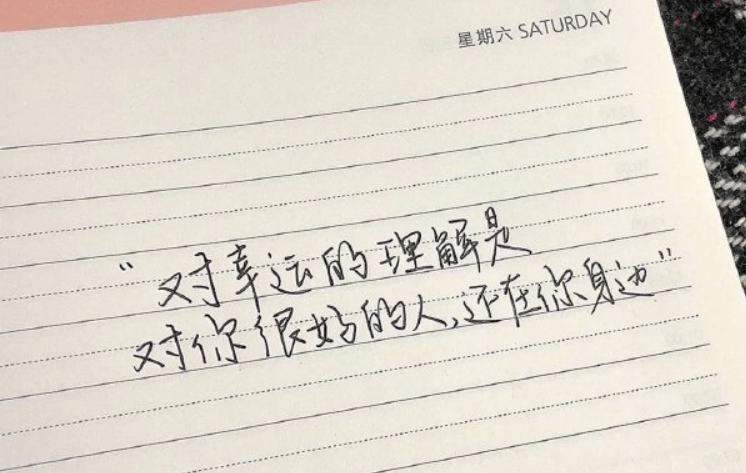 星期六 SATURDAY
“对幸运的理解是
对你很好的人,还在你身边”